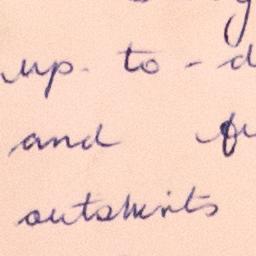 up-to-d
and fu
outskirts